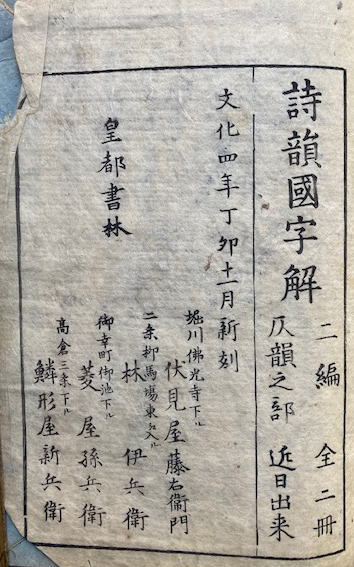 詩韻國字解 二編 全二冊
仄韻之部 近日出来
文化四年丁卯十一月新刻
皇都書林
堀川佛光寺下ル
伏見屋藤右衞門
二条柳馬場東ヘ入ル
林伊兵衞
御幸町御池下ル
菱屋孫兵衞
高倉三条下ル
鱗形屋新兵衞